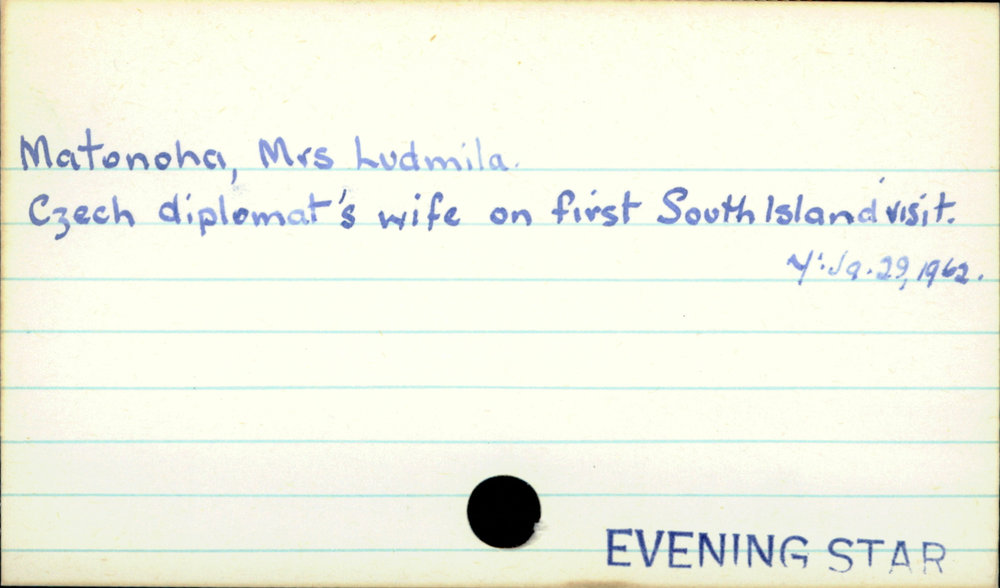 Matonoha, Mrs Ludmila.
Czech diplomat's wife on first South Island visit.
4: Ja. 29, 1962.
EVENING STAR